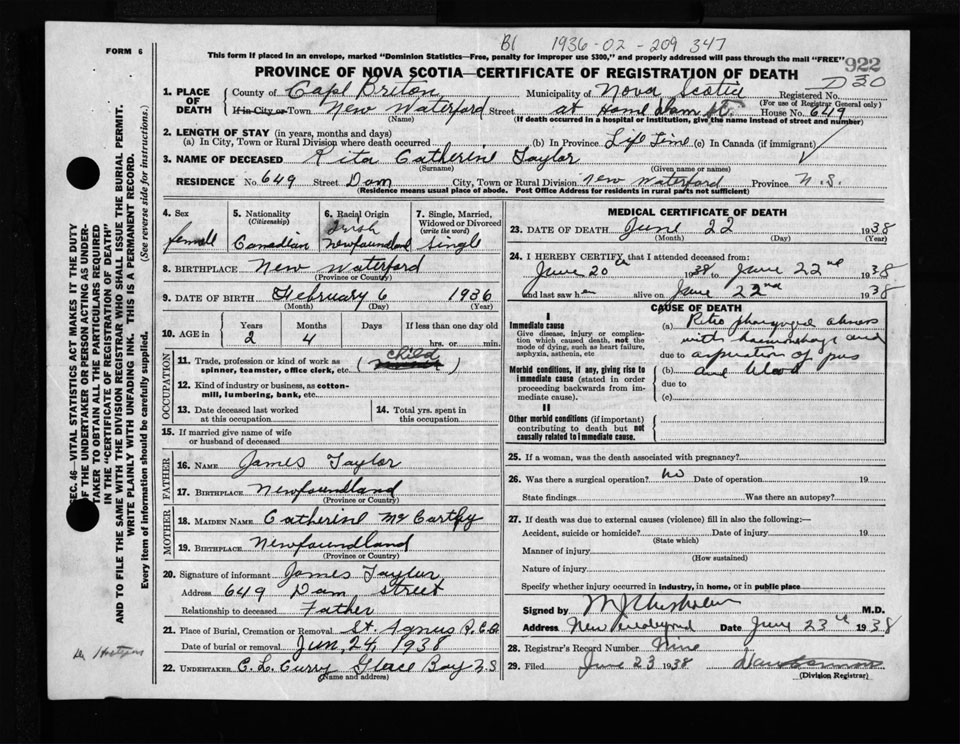 B1 1936-02-209 347
FORM 6
This form if placed in an envelope, marked "Dominion Statistics—Free, penalty for improper use $300," and properly addressed will pass through the mail "FREE"
922
PROVINCE OF NOVA SCOTIA—CERTIFICATE OF REGISTRATION OF DEATH
1. PLACE OF DEATH
County of Cape Briton Municipality of Nova Scotia Registered No.
(For use of Registrar General only)
If in City or Town New Waterford Street at Home Dam St. House No. 649
(Name) (If death occurred in a hospital or institution, give the name instead of street and number)
2. LENGTH OF STAY (in years, months and days)
(a) In City, Town or Rural Division where death occurred (b) In Province Life Time (c) In Canada (if immigrant)
3. NAME OF DECEASED Rita Catherine Taylor
(Surname) (Given name or names)
RESIDENCE No. 649 Street Dam City, Town or Rural Division New Waterford Province N.S.
(Residence means usual place of abode. Post Office Address for residents in rural parts not sufficient)
4. Sex female
5. Nationality (Citizenship) Canadian
6. Racial Origin Irish Newfoundland
7. Single, Married, Widowed or Divorced (write the word) Single
8. BIRTHPLACE New Waterford
(Province or Country)
9. DATE OF BIRTH February 6 1936
(Month) (Day) (Year)
10. AGE in Years Months Days If less than one day old
2 4 hrs. or min.
OCCUPATION
11. Trade, profession or kind of work as spinner, teamster, office clerk, etc. (child)
12. Kind of industry or business, as cotton-mill, lumbering, bank, etc.
13. Date deceased last worked at this occupation
14. Total yrs. spent in this occupation
15. If married give name of wife or husband of deceased
FATHER
16. NAME James Taylor
17. BIRTHPLACE Newfoundland
(Province or Country)
MOTHER
18. MAIDEN NAME Catherine McCarthy
19. BIRTHPLACE Newfoundland
(Province or Country)
20. Signature of informant James Taylor
Address 649 Dam Street
Relationship to deceased Father
21. Place of Burial, Cremation or Removal St. Agnus R.C.
Date of burial or removal Jun, 24, 1938
22. UNDERTAKER C. L. Curry Glace Bay N.S
(Name and address)
MEDICAL CERTIFICATE OF DEATH
23. DATE OF DEATH June 22 1938
(Month) (Day) (Year)
24. I HEREBY CERTIFY that I attended deceased from:
June 20th 1938 to June 22nd 1938
and last saw her alive on June 22nd 1938
CAUSE OF DEATH
I
Immediate cause
Give disease, injury or complication which caused death, not the mode of dying, such as heart failure, asphyxia, asthenia, etc
(a) Retro pharyngeal abscess
with haemorrhage and
due to aspiration of pus
Morbid conditions, if any, giving rise to immediate cause (stated in order proceeding backwards from immediate cause).
(b) and blood
due to
(c)
II
Other morbid conditions (if important) contributing to death but not causally related to immediate cause.
25. If a woman, was the death associated with pregnancy?
26. Was there a surgical operation? no Date of operation 19
State findings Was there an autopsy?
27. If death was due to external causes (violence) fill in also the following:—
Accident, suicide or homicide? Date of injury 19
(State which)
Manner of injury
(How sustained)
Nature of injury
Specify whether injury occurred in industry, in home, or in public place
Signed by M J Chisholm M.D.
Address New Waterford Date June 23rd 1938
28. Registrar's Record Number Nine
29. Filed June 23 1938
(Division Registrar)
SEC. 46—VITAL STATISTICS ACT MAKES IT THE DUTY
OF THE UNDERTAKER OR PERSON ACTING AS UNDER-
TAKER TO OBTAIN ALL THE PARTICULARS REQUIRED
IN THE "CERTIFICATE OF REGISTRATION OF DEATH"
AND TO FILE THE SAME WITH THE DIVISION REGISTRAR WHO SHALL ISSUE THE BURIAL PERMIT.
WRITE PLAINLY WITH UNFADING INK. THIS IS A PERMANENT RECORD.
Every item of information should be carefully supplied. (See reverse side for instructions.)